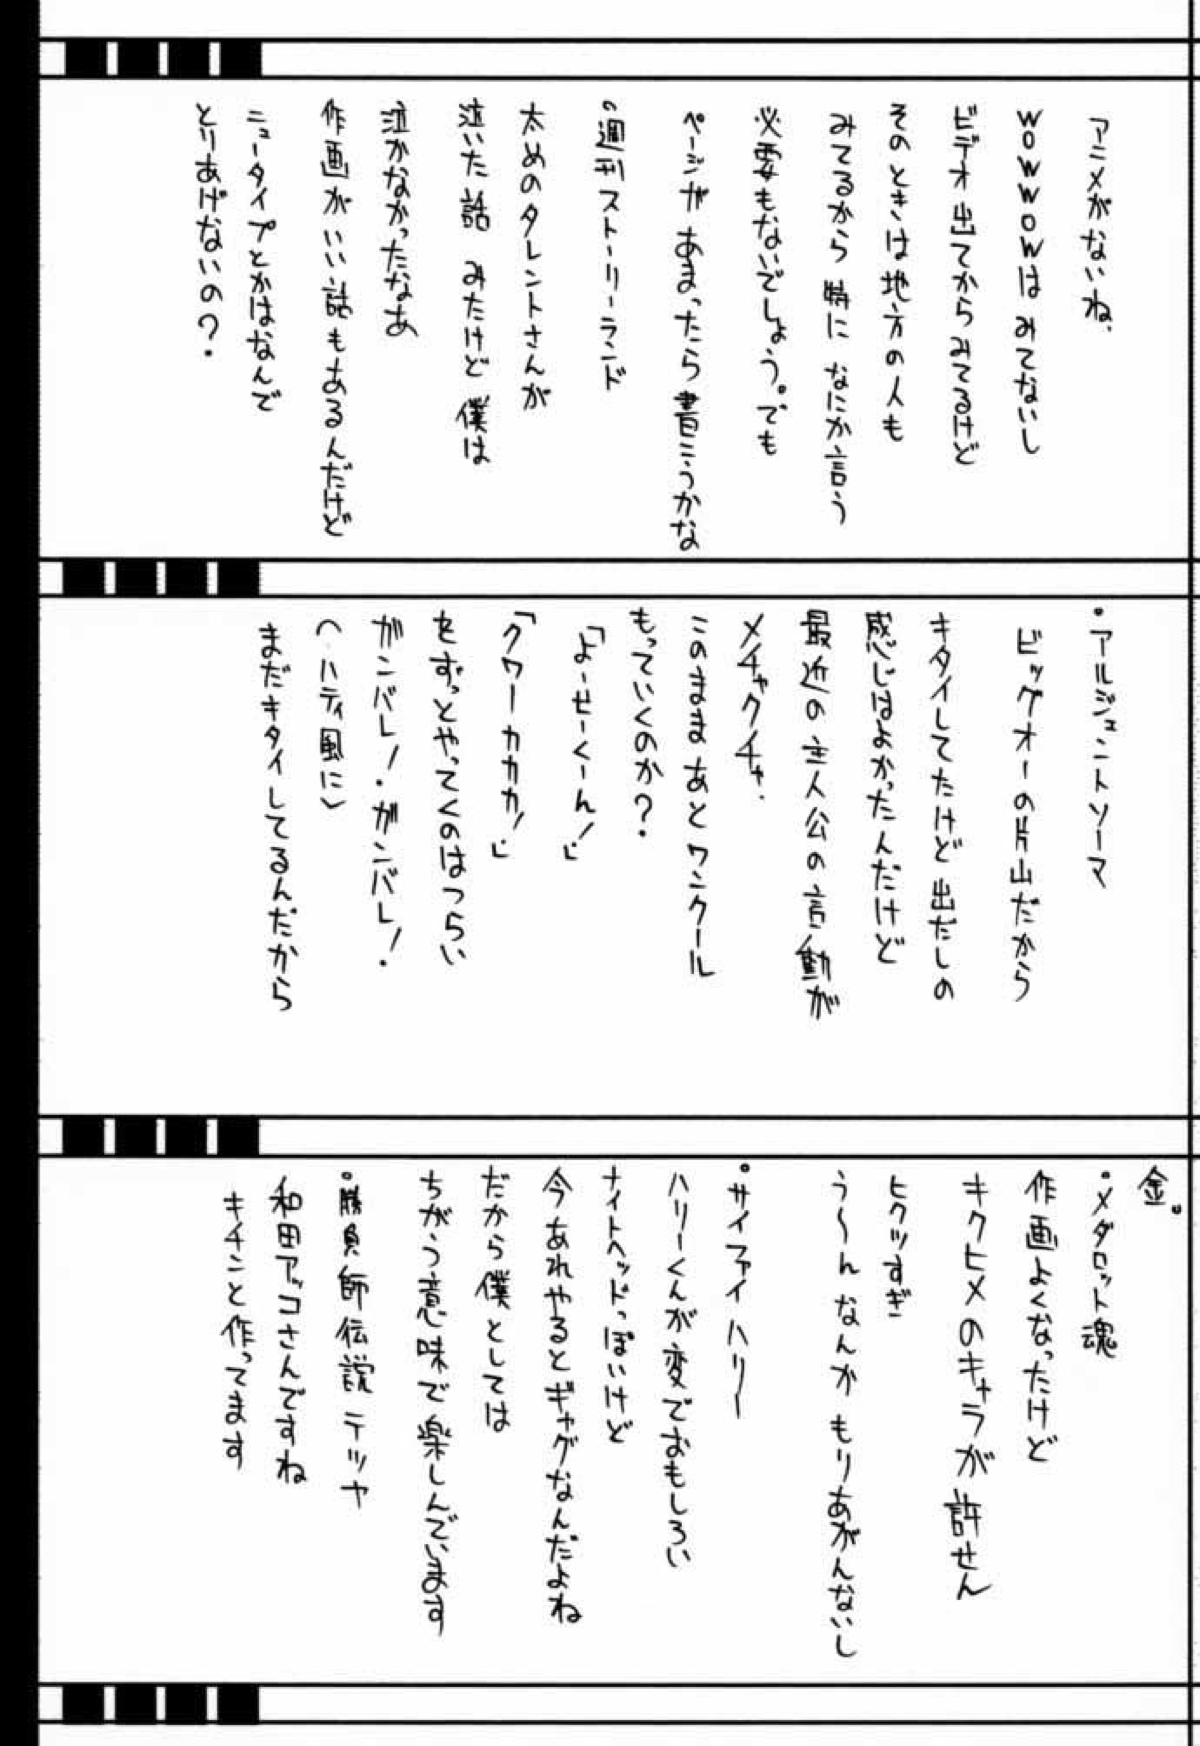 アニメがないね、
WOWWOWはみてないし
ビデオ出てからみてるけど
そのときは地方の人も
みてるから特になにか言う
必要もないでしょう。でも
ページがあまったら書こうかな
•週刊ストーリーランド
太めのタレントさんが
泣いた話 みたけど僕は
泣かなかったなあ
作画がいい話もあるんだけど
ニュータイプとかはなんで
とりあげないの?.
•アルジュントソーマ
ビッグオーの片山だから
キタイしてたけど出だしの
感じはよかったんだけど
最近の主人公の言動が
メチャクチャ.
このままあとワンクール
もっていくのか?.
「よーせーくーん!」
「クワーカカカ!」
をずっとやってくのはつらい
ガンバレ!.ガンバレ!.
(ハティ風に)
まだキタイしてるんだから
金。
•メダロット魂
作画よくなったけど
キクヒメのキャラが許せん
ヒクツすぎ
う〜んなんかもりあがんないし
•サイファイハリー
ハリーくんが変でおもしろい
ナイトヘッドっぽいけど
今あれやるとギャグなんだよね
だから僕としては
ちがう意味で楽しんでいます
•勝負師伝説テツヤ
和田アッコさんですね
キチンと作ってます